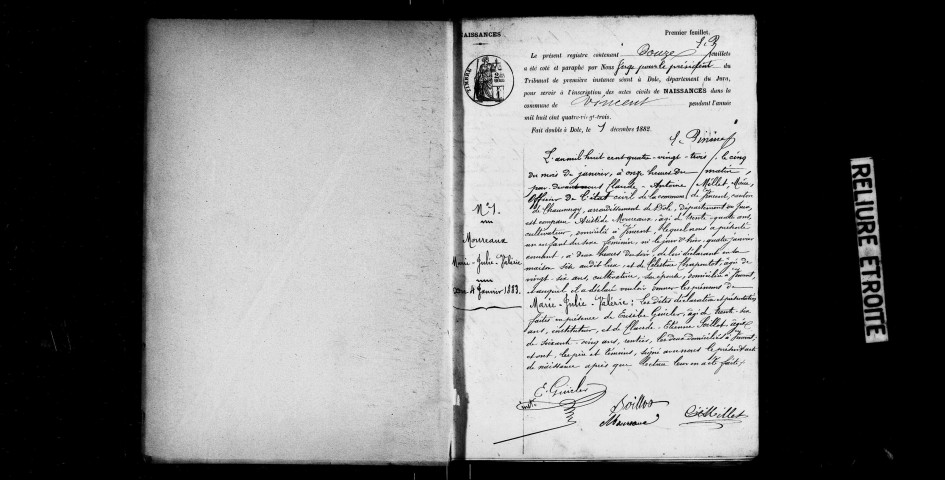 NAISSANCES
Premier feuillet.
Le présent registre contenant Douze feuillets
a été coté et paraphé par Nous Juge pour le président du
Tribunal de première instance séant à Dole, département du Jura,
pour servir à l'inscription des actes civils de NAISSANCES dans la
commune de Vincent pendant l'année
mil huit cent quatre-vingt-trois.
Fait double à Dole, le 1 décembre 1882.
TIMBRE
N° 1.
Moureaux
Marie-Julie-Valérie
Du 4 Janvier 1883.
L'an mil huit cent quatre-vingt-trois, le cinq
du mois de janvier, à onze heures du matin,
par devant nous Claude-Antoine Millet, Maire,
Officier de l'état civil de la commune de Vincent, canton
de Chaumergy, arrondissement de Dole, département du Jura,
est comparu Aristide Moureaux, âgé de trente-quatre ans,
cultivateur, domicilié à Vincent, lequel nous a présenté
un enfant du sexe féminin, né le jour d'hier, quatre janvier
courant, à deux heures du soir, de lui déclarant en sa
maison sise audit lieu, et de Célestine Chapoutot, âgée de
vingt-six ans, cultivatrice, son épouse, domiciliée à Vincent,
et auquel il a déclaré vouloir donner les prénoms de
Marie-Julie-Valérie; les dites déclaration et présentation
faites en présence de Eusèbe Guicler, âgé de trente-six
ans, instituteur, et de Claude-Etienne Soillot, âgé
de soixante-cinq ans, rentier, les deux domiciliés à Vincent,
et ont, les père et témoins, signé avec nous le présent acte
de naissance après que lecture leur en a été faite.
E. Guicler
Soillot
Moureaux
C. A. Millet
RELIURE ETROITE